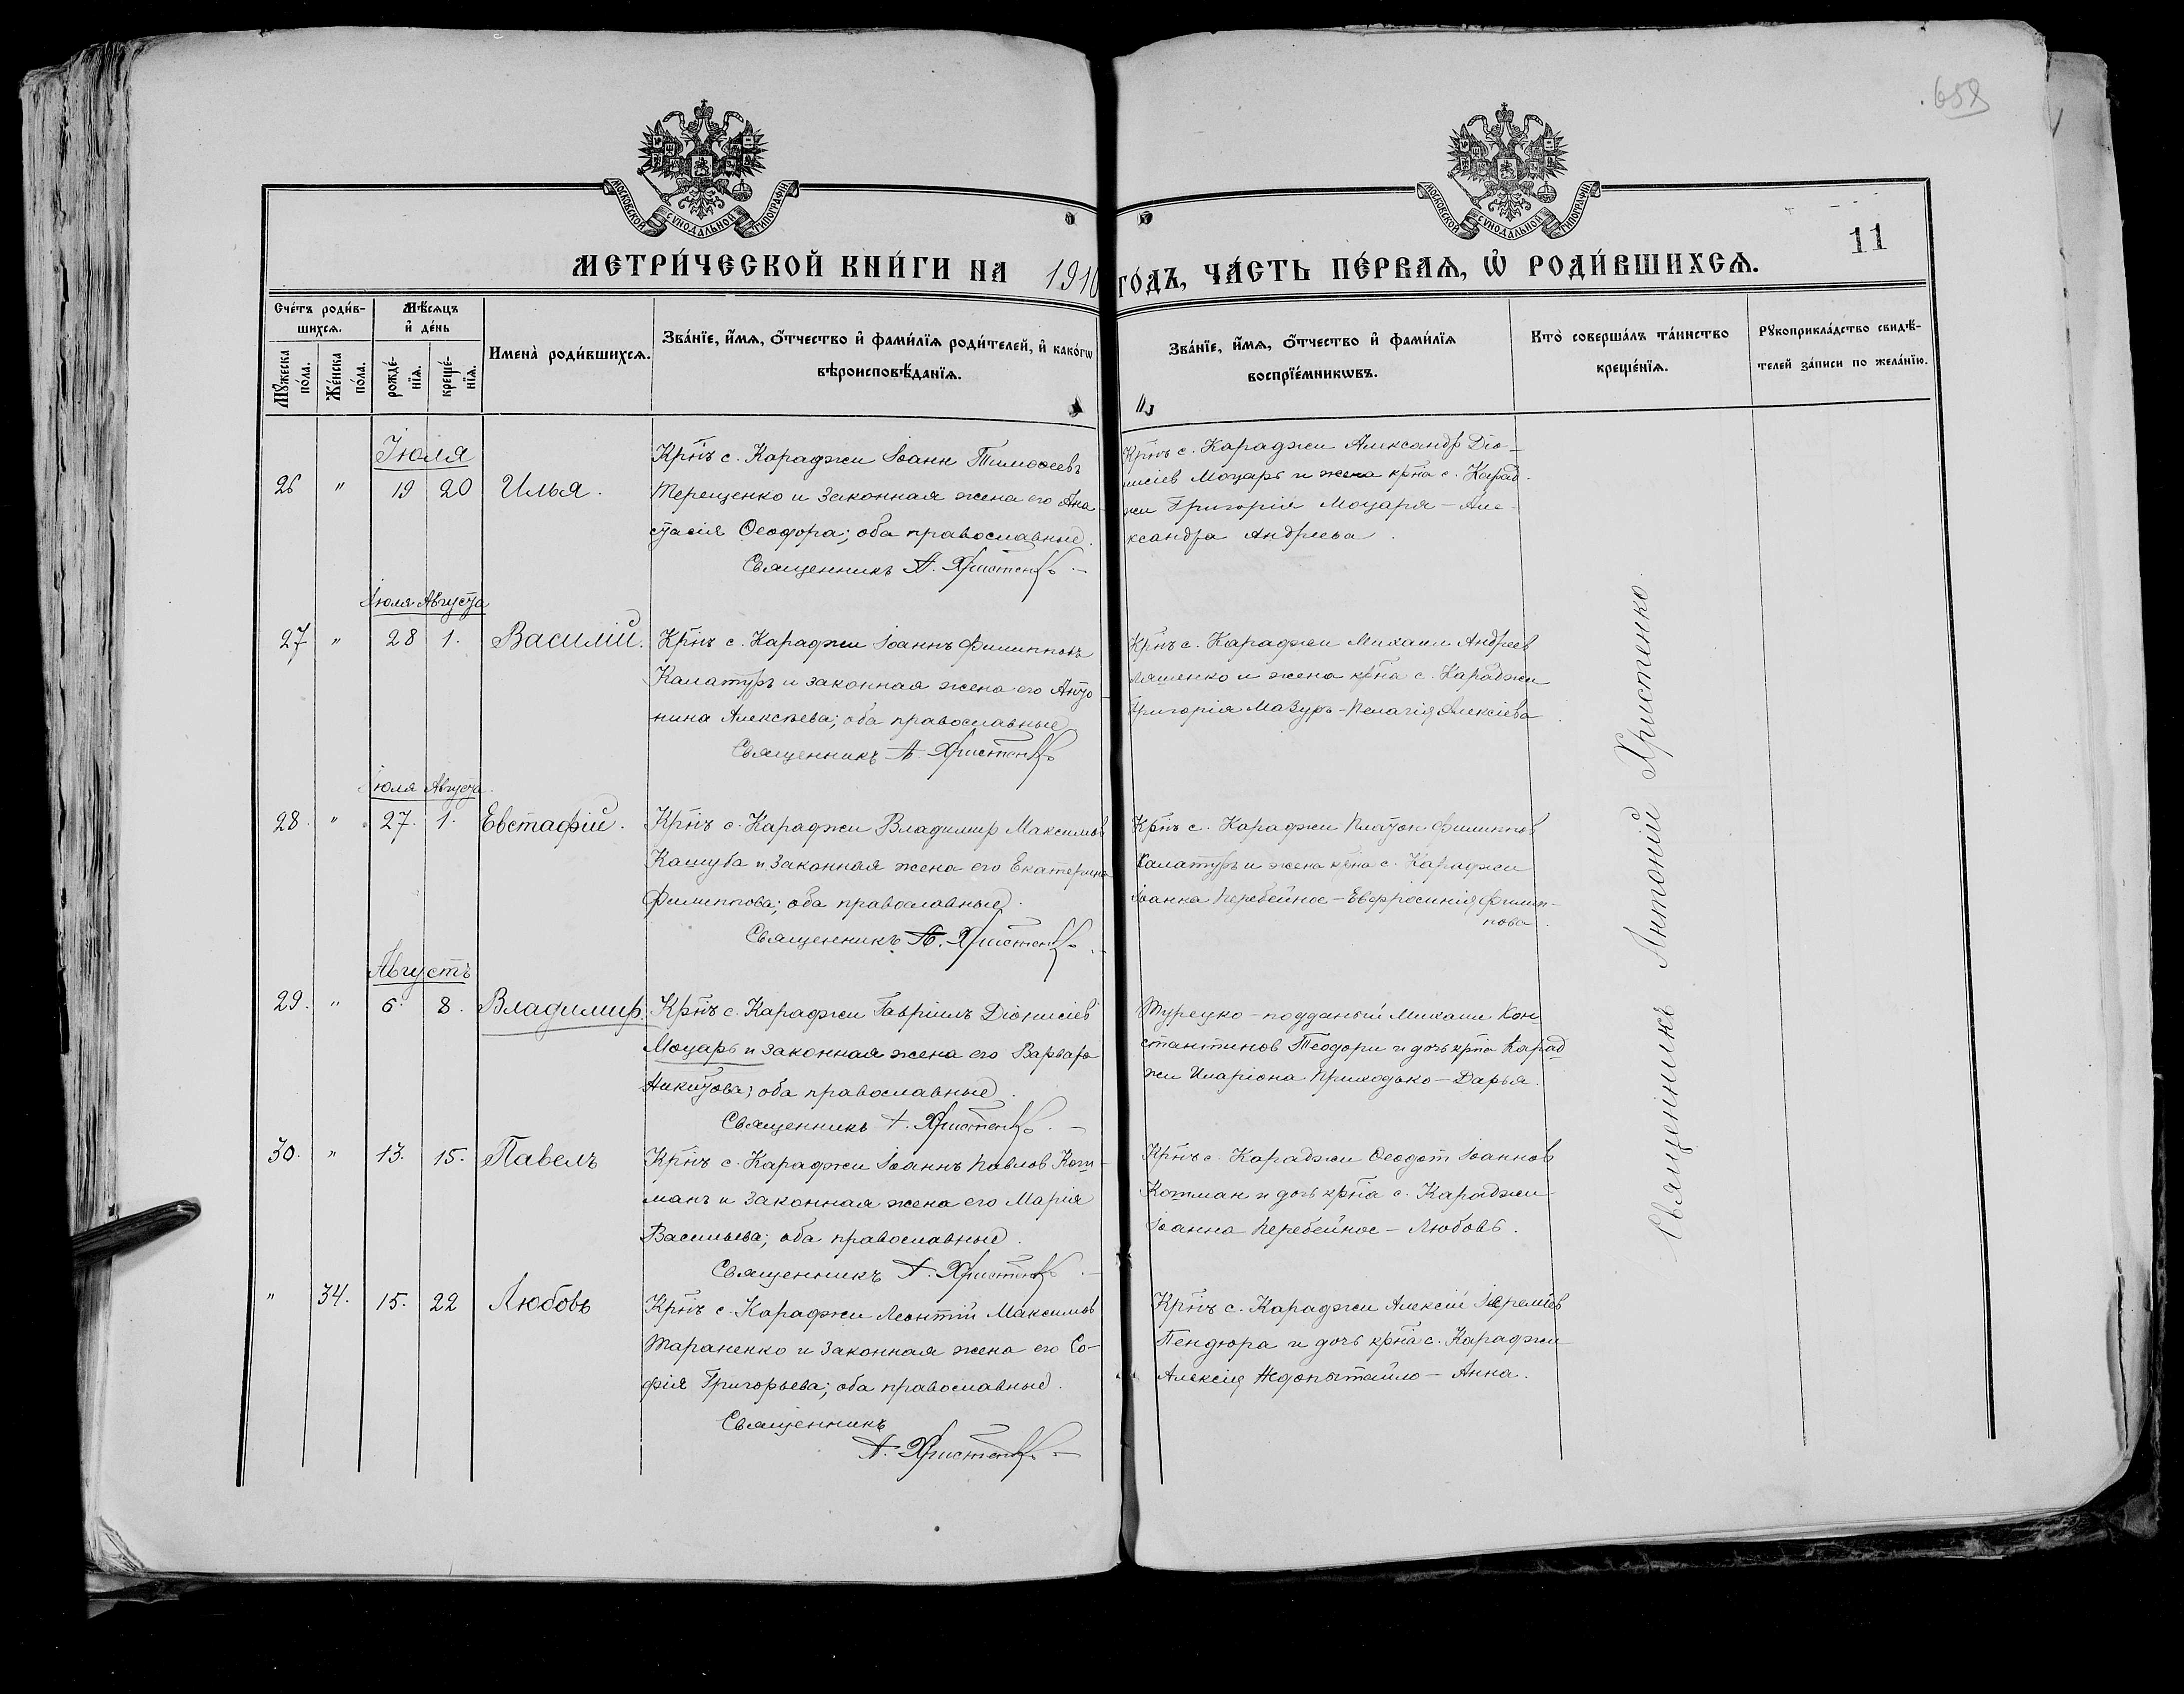 658
МОСКОВСКОЙ СѴНОДАЛЬНОЙ ТИПОГРАФІИ
МОСКОВСКОЙ СѴНОДАЛЬНОЙ ТИПОГРАФІИ
11
МЕТРИ́ЧЕСКОЙ КНИ́ГИ НА 1910 ГО́ДЪ, ЧА́СТЬ ПЕ́РВАЯ, Ѡ҆ РОДИ́ВШИХСЯ.
Сче́тъ роди́в-
шихся.
Мѣ́сяцъ
и҆ де́нь
Мꙋ́жеска
по́ла.
Же́нска
по́ла.
рожде́-
нїя.
креще́-
нїя.
Имена̀ роди́вшихся.
Зва́нїе, и҆́мя, о҆́тчество и҆ фами́лїя роди́телей, и҆ како́гѡ
вѣроисповѣ́данїя.
Зва́нїе, и҆́мя, о҆́тчество и҆ фами́лїя
воспрїе́мникѡвъ.
Кто̀ соверша́лъ та́инство
креще́нїя.
Рꙋкоприкла́дство свидѣ́-
телей за́писи по жела́нїю.
Іюля
26 " 19 20 Илья.
Крнъ с. Караджи Іоанн Тимофеевъ
Терещенко и законная жена его Ана-
стасія Ѳеодора; оба православные.
Священникъ А. Христенко
Крнъ с. Караджи Александр Діо-
нисіев Моцарь и жена крна с. Карад-
жи Григорія Моцаря - Але-
ксандра Андреева.
Іюля Августа
27 " 28 1. Василій.
Крнъ с. Караджи Іоаннъ Филипповъ
Калатуръ и законная жена его Анто-
нина Алексѣева; оба православные
Священникъ А. Христенко
Крнъ с. Караджи Михаил Андреев
Ляшенко и жена крна с. Караджи
Григорія Мазуръ - Пелагія Алексіева
Іюля Августа.
28. " 27. 1. Евстафій.
Крнъ с. Караджи Владимир Максимов
Кашуба и законная жена его Екатерина
Филиппова; оба православные.
Священникъ А. Христенко
Крнъ с. Караджи Платон Филиппов
Калатуръ и жена крна с. Караджи
Іоанна Перебейнос - Евфросинія Филип-
пова.
Августъ
29. " 6. 8. Владимир.
Крнъ с. Караджи Гавріилъ Діонисіев
Моцарь и законная жена его Варвара
Никитова; оба православные.
Священникъ А. Христенко
Турецко-подданый Михаил Кон-
стантинов Теодори и дочь крна Карад
жи Иларіона Приходько - Дарья.
30. " 13. 15. Павелъ
Крнъ с. Караджи Іоаннъ Павлов Кот-
манъ и законная жена его Марія
Васильева; оба православные.
Священникъ А. Христенко
Крнъ с. Караджи Ѳеодот Іоаннов
Котман и дочь крна с. Караджи
Іоанна Перебейнос - Любовь.
" 34. 15. 22 Любовь
Крнъ с. Караджи Леонтій Максимов
Тараненко и законная жена его Со-
фія Григорьева; оба православные.
Священникъ
А. Христенко
Крнъ с. Караджи Алексій Іереміев
Пендюра и дочь крна с. Караджи
Алексія Недопытайло - Анна.
Священникъ Антоній Христенко.